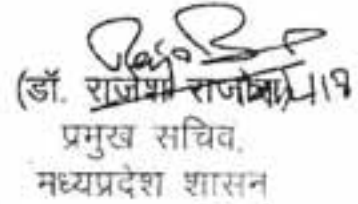 (डॉ. राजेश राजोरा)
प्रमुख सचिव,
मध्यप्रदेश शासन